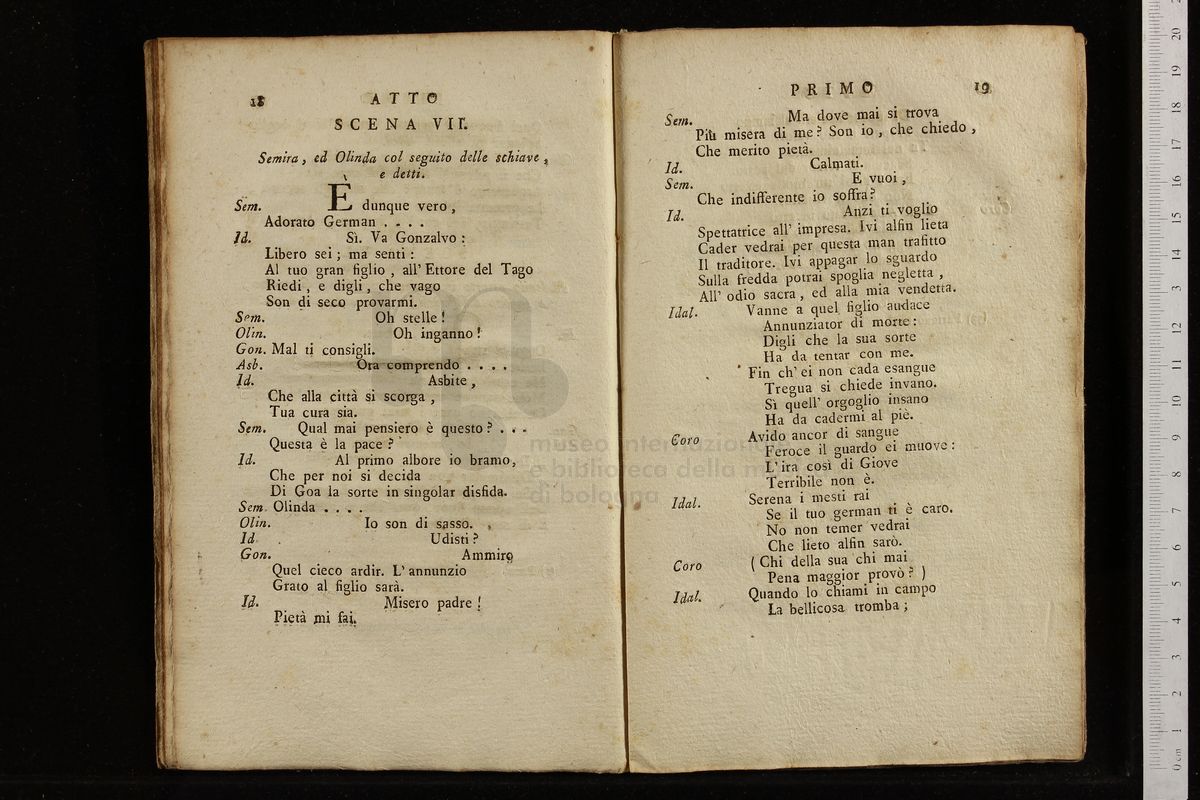 18 ATTO
SCENA VII.
Semira, ed Olinda col seguito delle schiave,
e detti.
Sem. È dunque vero,
Adorato German . . . .
Id. Sì. Va Gonzalvo:
Libero sei; ma senti:
Al tuo gran figlio, all' Ettore del Tago
Riedi, e digli, che vago
Son di seco provarmi.
Sem. Oh stelle!
Olin. Oh inganno!
Gon. Mal ti consigli.
Asb. Ora comprendo . . . .
Id. Asbite,
Che alla città si scorga,
Tua cura sia.
Sem. Qual mai pensiero è questo? . . .
Questa è la pace?
Id. Al primo albore io bramo,
Che per noi si decida
Di Goa la sorte in singolar disfida.
Sem. Olinda . . . .
Olin. Io son di sasso.
Id. Udisti?
Gon. Ammiro
Quel cieco ardir. L' annunzio
Grato al figlio sarà.
Id. Misero padre!
Pietà mi fai.
PRIMO 19
Sem. Ma dove mai si trova
Più misera di me? Son io, che chiedo,
Che merito pietà.
Id. Calmati.
Sem. E vuoi,
Che indifferente io soffra?
Id. Anzi ti voglio
Spettatrice all' impresa. Ivi alfin lieta
Cader vedrai per questa man trafitto
Il traditore. Ivi appagar lo sguardo
Sulla fredda potrai spoglia negletta,
All' odio sacra, ed alla mia vendetta.
Idal. Vanne a quel figlio audace
Annunziator di morte:
Digli che la sua sorte
Ha da tentar con me.
Fin ch' ei non cada esangue
Tregua si chiede invano.
Sì quell' orgoglio insano
Ha da cadermi al piè.
Coro Avido ancor di sangue
Feroce il guardo ei muove:
L' ira così di Giove
Terribile non è.
Idal. Serena i mesti rai
Se il tuo german ti è caro.
No non temer vedrai
Che lieto alfin sarò.
Coro (Chi della sua chi mai
Pena maggior provò?)
Idal. Quando lo chiami in campo
La bellicosa tromba;
museo internazionale
e biblioteca della m
di bologna
0 cm 1 2 3 4 5 6 7 8 9 10 11 12 13 14 15 16 17 18 19 20